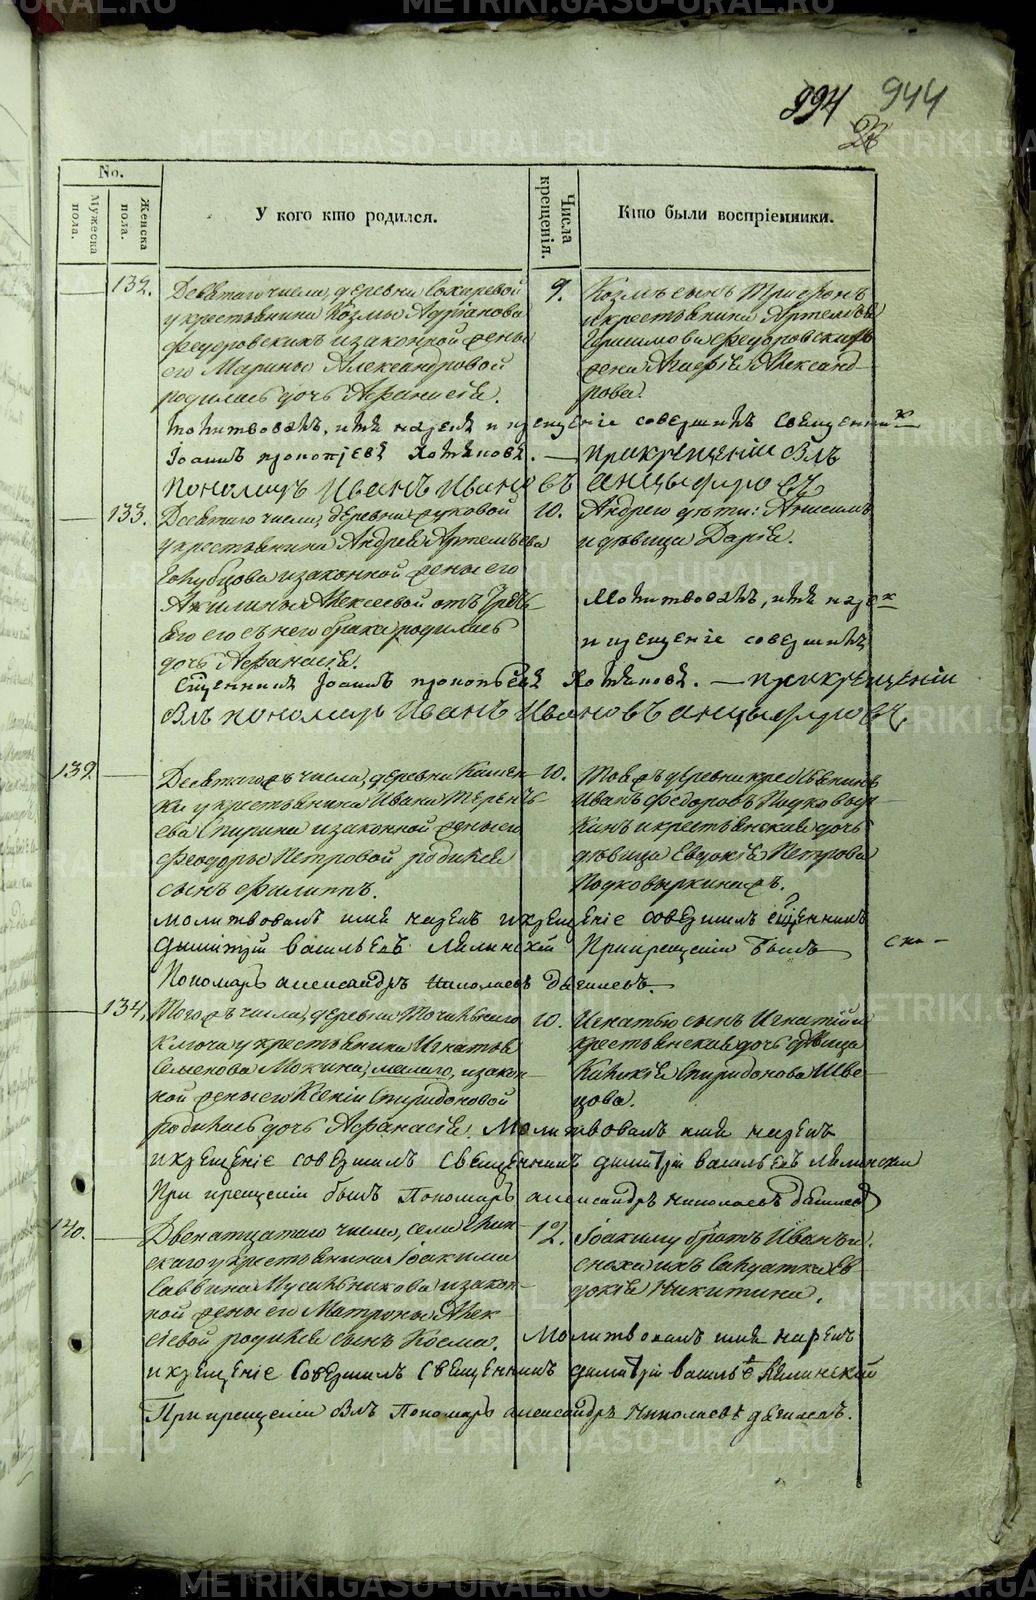 994 944
No.
Мужеска пола.
Женска пола.
У кого кто родился.
Числа крещенія.
Кто были воспріемники.
132. Девятаго числа, деревни
у крестьянина Козмы Адріанова
Федоровскихъ и законной жены
его Марины Александровой
родилась дочь Афанасія.
9.
Козмы сынъ Трифонъ
и крестьянина Артемія
Федоровскихъ
жена Александ-
рова.
Молитвовалъ, имя нарекъ и крещеніе совершилъ священникъ
Іоаннъ Прокопіевъ Хотяновъ. — При крещеніи былъ
Пономарь Иванъ Ивановъ Анцыферовъ
133. Десятаго числа, деревни
у крестьянина Андрея Артемьева
Голубцова и законной жены его
Акилины Алексеевой отъ треть-
яго его съ него брака родилась
дочь Афанасія.
10.
Андрея дѣти: Анисимъ
и дѣвица Дарія.
Молитвовалъ, имя нарекъ
и крещеніе совершилъ
священникъ Іоаннъ Прокопьевъ Хотяновъ. — При крещеніи
былъ пономарь Иванъ Ивановъ Анцыферовъ
139 Десятагожъ числа, деревни Камен-
ки у крестьянина Ивана Терень-
ева Спирина и законной жены его
Феодоры Петровой родился
сынъ Филиппъ.
10.
Тояжъ деревни крестьянинъ
Иванъ Федоровъ Подковыр-
кинъ и крестьянская дочь
дѣвица Евдокія Петрова
Подковыркина жъ.
Молитвовалъ имя нарекъ и крещеніе совершилъ священникъ
Димитрій Васильевъ Лялинскій При крещеніи былъ
Пономарь Александръ Николаевъ Дягилевъ.
134. Тогожъ числа, деревни Точильнаго
ключа у крестьянина Игнатья
Семенова Мокина, малаго, и закон-
ной жены его Ксеніи Спиридоновой
родилась дочь Афанасія.
10.
Игнатью сынъ Игнатій и
крестьянская дочь дѣвица
Спиридонова Шве-
цова.
Молитвовалъ имя нарекъ
и крещеніе совершилъ священникъ Димитрій Васильевъ Лялинскій
При крещеніи былъ Пономарь Александръ Николаевъ Дягилевъ
140. Двенатцатаго числа, села
скаго у крестьянина Іоакима
Саввина Мусальникова и закон-
ной жены его Матроны Алек-
сіевой родился сынъ Косма.
12.
Іоакиму братъ Иванъ и
сноха ихъ салдатка Ев-
докія Никитина.
Молитвовалъ имя нарекъ
и крещеніе совершилъ священникъ Димитрій Васильевъ Лялинскій
При крещеніи былъ Пономарь Александръ Николаевъ Дягилевъ.
METRIKI.GASO-URAL.RU